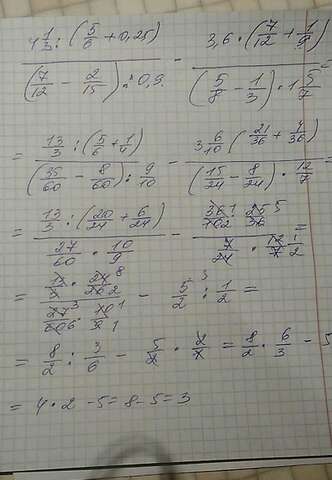 4 1/3 : (5/6 + 0,25) / (7/12 − 2/15) : 0,9 − 3,6 · (7/12 + 1/9) / (5/8 − 1/3) · 1 5/7 =
= 13/3 : (5/6 + 1/4) / (35/60 − 8/60) : 9/10 − 3 6/10 (21/36 + 4/36) / (15/24 − 8/24) · 12/7 =
= 13/3 : (20/24 + 6/24) / 27/60 · 10/9 − 36/10 · 25/36 / 7/24 · 12/7 =
= 13/3 · 24/26 / 27/60 · 10/9 − 5/2 : 1/2 =
= 8/2 : 3/6 − 5/2 · 2/1 = 8/2 · 6/3 − 5
= 4 · 2 − 5 = 8 − 5 = 3